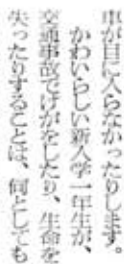 車が目に入らなかったりします。
かわいらしい新入学一年生が、
交通事故でけがをしたり、生命を
失ったりすることは、何としても